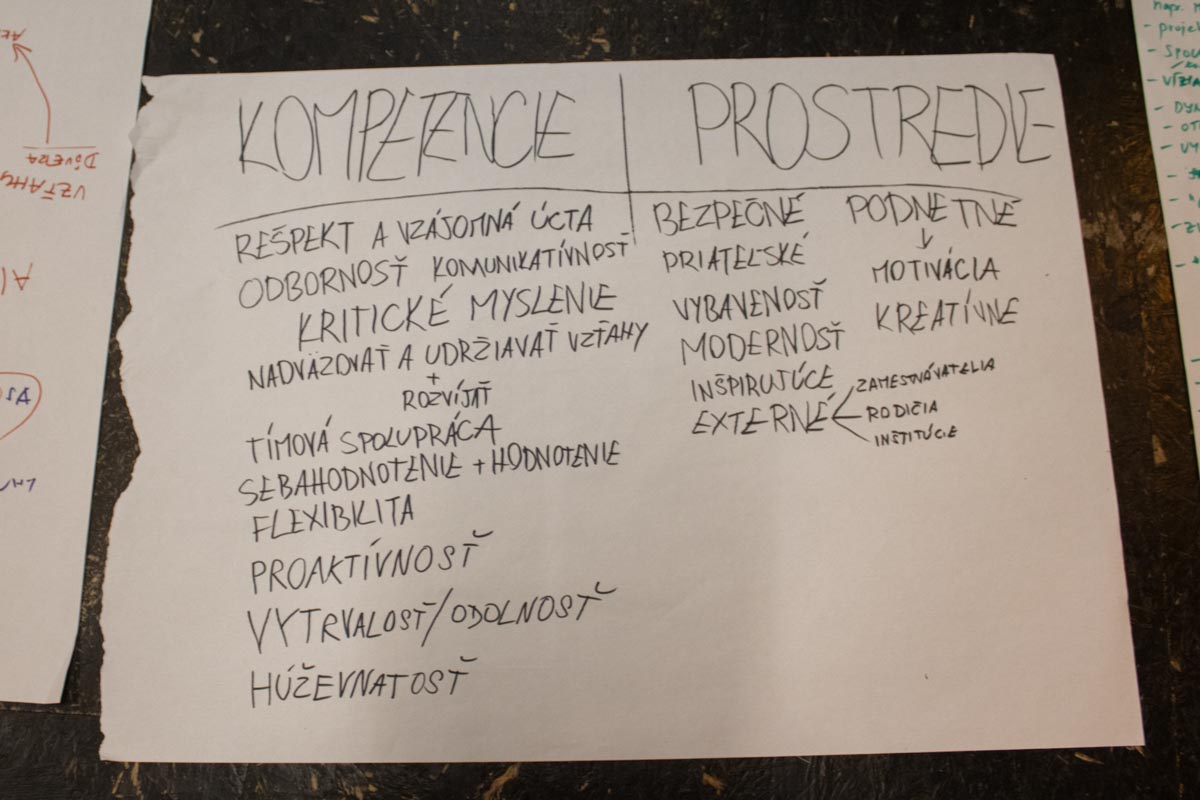 KOMPETENCIE
REŠPEKT A VZÁJOMNÁ ÚCTA
ODBORNOSŤ KOMUNIKATÍVNOSŤ
KRITICKÉ MYSLENIE
NADVÄZOVAŤ A UDRŽIAVAŤ VZŤAHY
+
ROZVÍJAŤ
TÍMOVÁ SPOLUPRÁCA
SEBAHODNOTENIE + HODNOTENIE
FLEXIBILITA
PROAKTÍVNOSŤ
VYTRVALOSŤ/ODOLNOSŤ
HÚŽEVNATOSŤ
PROSTREDIE
BEZPEČNÉ
PRIATEĽSKÉ
VYBAVENOSŤ
MODERNOSŤ
INŠPIRUJÚCE
EXTERNÉ
ZAMESTNÁVATELIA
RODIČIA
INŠTITÚCIE
PODNETNÉ
↓
MOTIVÁCIA
KREATÍVNE
DÔVERA
VZŤAHY